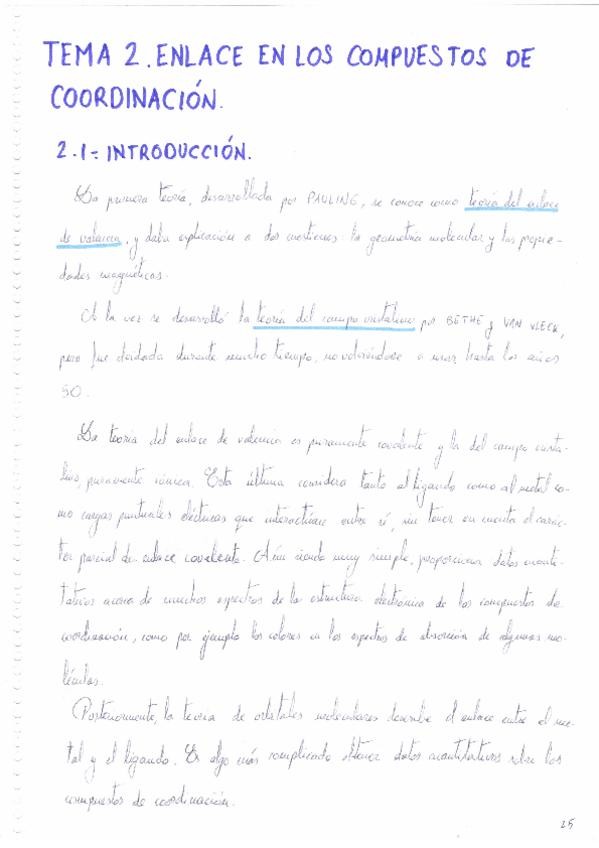 TEMA 2. ENLACE EN LOS COMPUESTOS DE
COORDINACIÓN.
2.1- INTRODUCCIÓN.
La primera teoría, desarrollada por PAULING, se conoce como teoría del enlace
de valencia, y daba explicación a dos cuestiones: la geometría molecular y las propie-
dades magnéticas.
A la vez se desarrolló la teoría del campo cristalino por BETHE y VAN VLECK,
pero fue olvidada durante mucho tiempo, no volviéndose a usar hasta los años
50.
La teoría del enlace de valencia es puramente covalente y la del campo crista-
lino, puramente iónica. Esta última considera tanto al ligando como al metal co-
mo cargas puntuales eléctricas que interactúan entre sí, sin tener en cuenta el carác-
ter parcial de enlace covalente. Aún siendo muy simple, proporciona datos cuanti-
tativos acerca de muchos aspectos de la estructura electrónica de los compuestos de
coordinación, como por ejemplo los colores en los espectros de absorción de algunas mo-
léculas.
Posteriormente, la teoría de orbitales moleculares describe el enlace entre el me-
tal y el ligando. Es algo más complicado obtener datos cuantitativos sobre los
compuestos de coordinación.
25